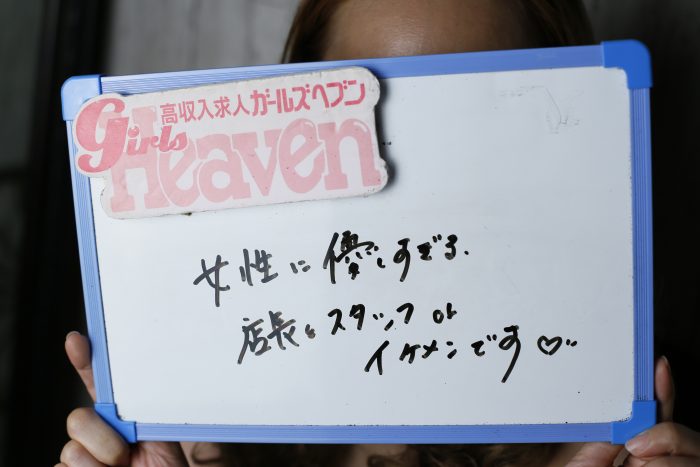 高収入求人ガールズヘブン
Girls
Heaven
女性に優しすぎる.
店長とスタッフが
イケメンです♡